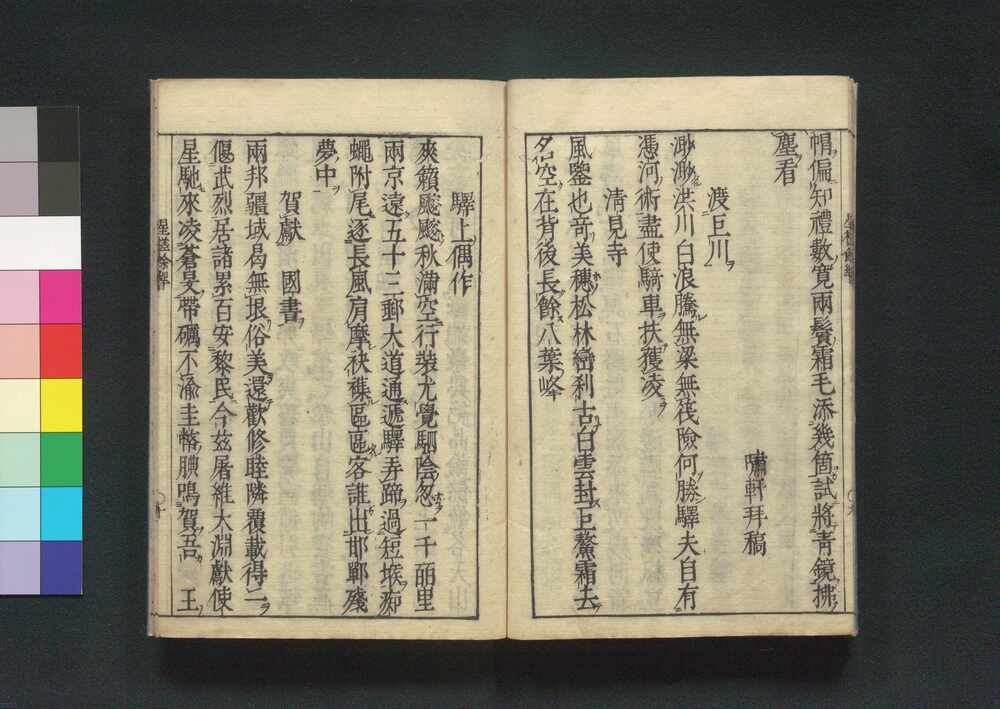 帽偏知禮數寬兩鬢霜毛添幾箇試將青鏡拂
塵看
嘯軒拜稿
渡巨川
渺渺洪川白浪騰無梁無筏險何勝驛夫自有
憑河術盡使騎車扶獲凌
清見寺
風鑒也奇美穗松林巒刹古白雲封巨鰲霜去
名空在背後長餘八葉峰
驛上偶作
爽籟颼颼秋滿空行裝尤覺馹陰忽一千皕里
兩京遠五十三郵大道通遞驛弄蹄過短堠痴
蠅附尾逐長風肩摩袂襍區區客誰出邯鄲殘
夢中
賀獻 國書
兩邦疆域曷無垠俗美還歡修睦隣覆載得二
偃武烈居諸累百安黎民今茲屠維大淵獻使
星馳來凌蒼旻帶礪不渝圭幣腆鳴賀吾 王